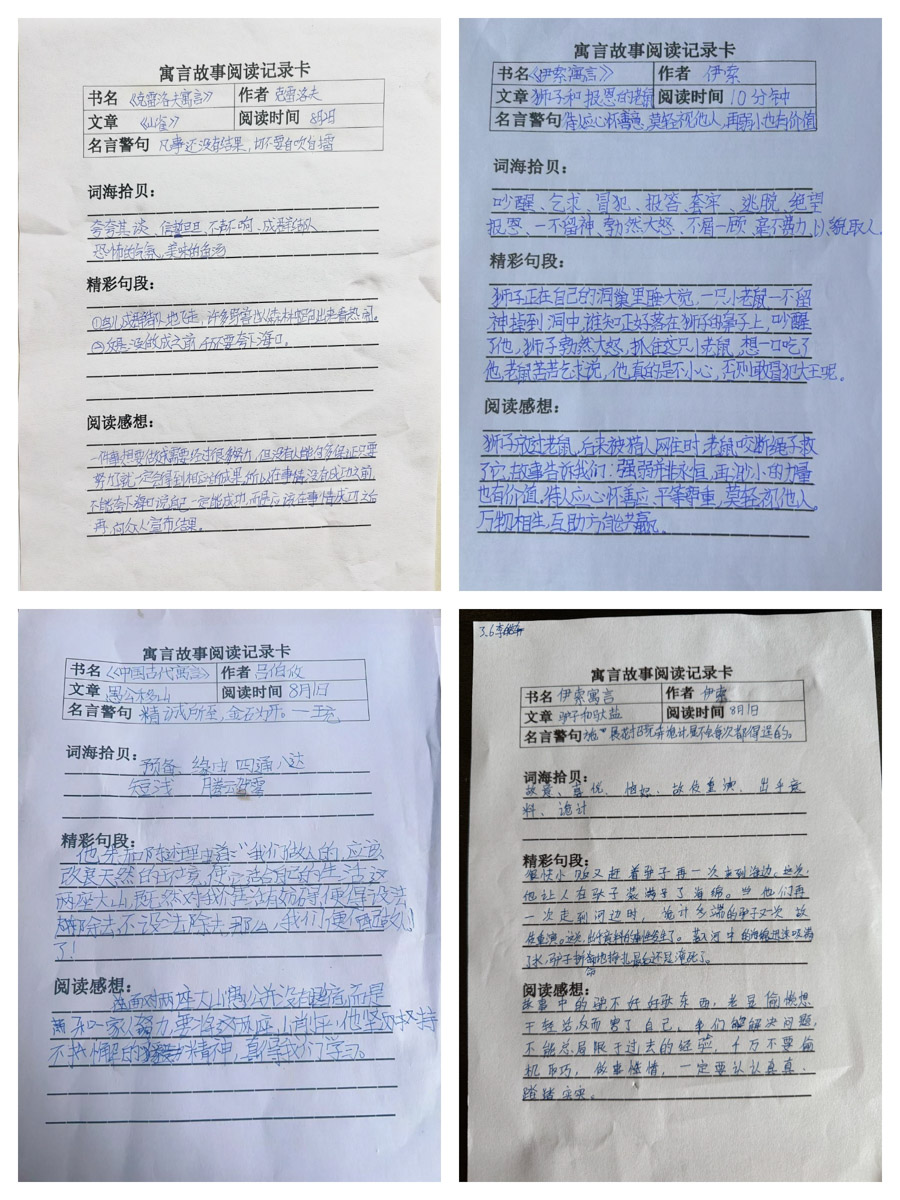 寓言故事阅读记录卡
书名 《克雷洛夫寓言》 作者 克雷洛夫
文章 《山雀》 阅读时间 8月1日
名言警句 凡事还没有结果，切不要自吹自擂
词海拾贝：
夸夸其谈、信誓旦旦、不声不响、成群结队
恐怖的气氛、美味的鱼汤
精彩句段：
①鸟儿成群结队地飞走，许多野兽也从森林中跑出来看热闹。
②大事没做成之前，千万不要夸下海口。
阅读感想：
一件事想要做成需要经过很多努力，但没有人能够保证只要
努力就一定会得到相应的成果，所以在事情没有成功之前，
不能夸下海口说自己一定能成功，而是应该在事情成功之后
再向众人宣布结果。
寓言故事阅读记录卡
书名《伊索寓言》 作者 伊索
文章 狮子和报恩的老鼠 阅读时间 10分钟
名言警句 待人应心怀善意，莫轻视他人，再弱小也有价值
词海拾贝：
吵醒、乞求、冒犯、报答、套牢、逃脱、绝望
报恩、一不留神、勃然大怒、不屑一顾、毫不费力、以貌取人
精彩句段：
狮子正在自己的洞巢里睡大觉，一只小老鼠一不留
神掉到洞中，谁知正好落在狮子的鼻子上，吵醒
了他，狮子勃然大怒，抓住这只小老鼠，想一口吃了
他，老鼠苦苦乞求说，他真的是不小心，否则哪敢冒犯大王呢。
阅读感想：
狮子放过老鼠，后来被猎人网住时，老鼠咬断绳子救
了它，故事告诉我们：强弱并非永恒，再渺小的力量
也有价值。待人应心怀善应、平等尊重，莫轻视他人。
万物相生，互助方能共赢。
寓言故事阅读记录卡
书名《中国古代寓言》 作者 吕伯攸
文章 愚公移山 阅读时间 8月1日
名言警句 精诚所至，金石为开。—王充
词海拾贝：
预备 缘由 四通八达
短浅 腾云驾雾
精彩句段：
他先和邻里理由道：“我们做人的，应该
改良天然的环境，使它适合自己的生活，这
两座大山，既然对我们生活有妨碍，便得设法
除去，不设法除去，那么，我们便愧做人
了！
阅读感想：
面对两座大山愚公并没有愿意，而是
和一家人努力，要将这两座山削平，他坚持
不懈的精神，真得我们学习。
3.6李
寓言故事阅读记录卡
书名 伊索寓言 作者 伊索
文章 驴子和驮盐 阅读时间 8月1日
名言警句
词海拾贝：
故意、喜悦、恼怒、故伎重演、出乎意
料、诡计
精彩句段：
很快小贩又赶着驴子再一次来到海边，这次，
他让人在驴子装满了海绵。当他们再
一次走到河边时，诡计多端的驴子又一次故
伎重演。这次，出乎意料的事情发生了。落入河中的海绵迅速吸满
了水，驴子拼命地挣扎最后还是淹死了。
阅读感想：
故事中的驴不好好驮东西，老是偷懒想
干轻活，反而害了自己，我们解决问题，
不能总局限于过去的经验，千万不要偷
机取巧，做事性情，一定要认认真真，
踏踏实实。